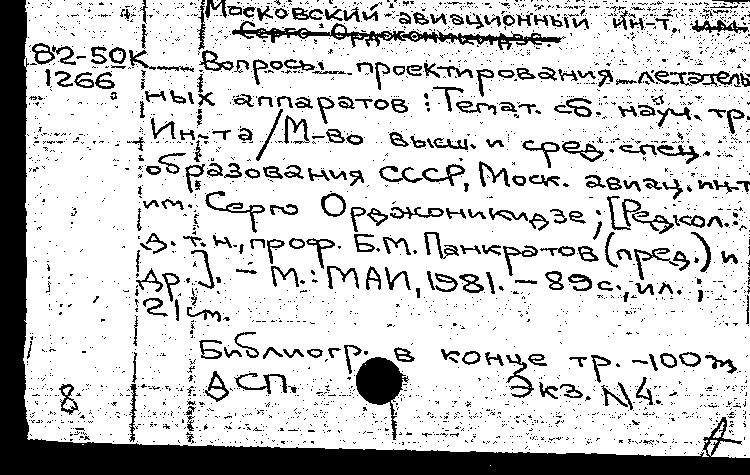 Московский авиационный ин-т. им.
Серго Орджоникидзе.
82-50К Вопросы проектирования летатель
1266 ных аппаратов : Темат. сб. науч. тр.
Ин-та / М-во высш. и сред. спец.
образования СССР, Моск. авиац. ин-т
им. Серго Орджоникидзе ; [Редкол.:
д. т. н., проф. Б.М. Панкратов (пред.) и
др.]. - М. : МАИ, 1981. - 89 с., ил. ;
21 см.
Библиогр. в конце тр. -100
8 ДСП. Экз. N 4.